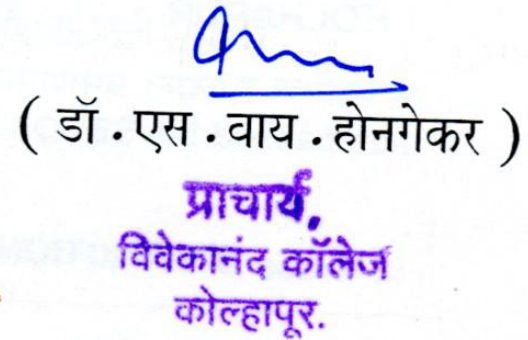 ( डॉ . एस . वाय . होनगेकर )
प्राचार्य,
विवेकानंद कॉलेज
कोल्हापूर.